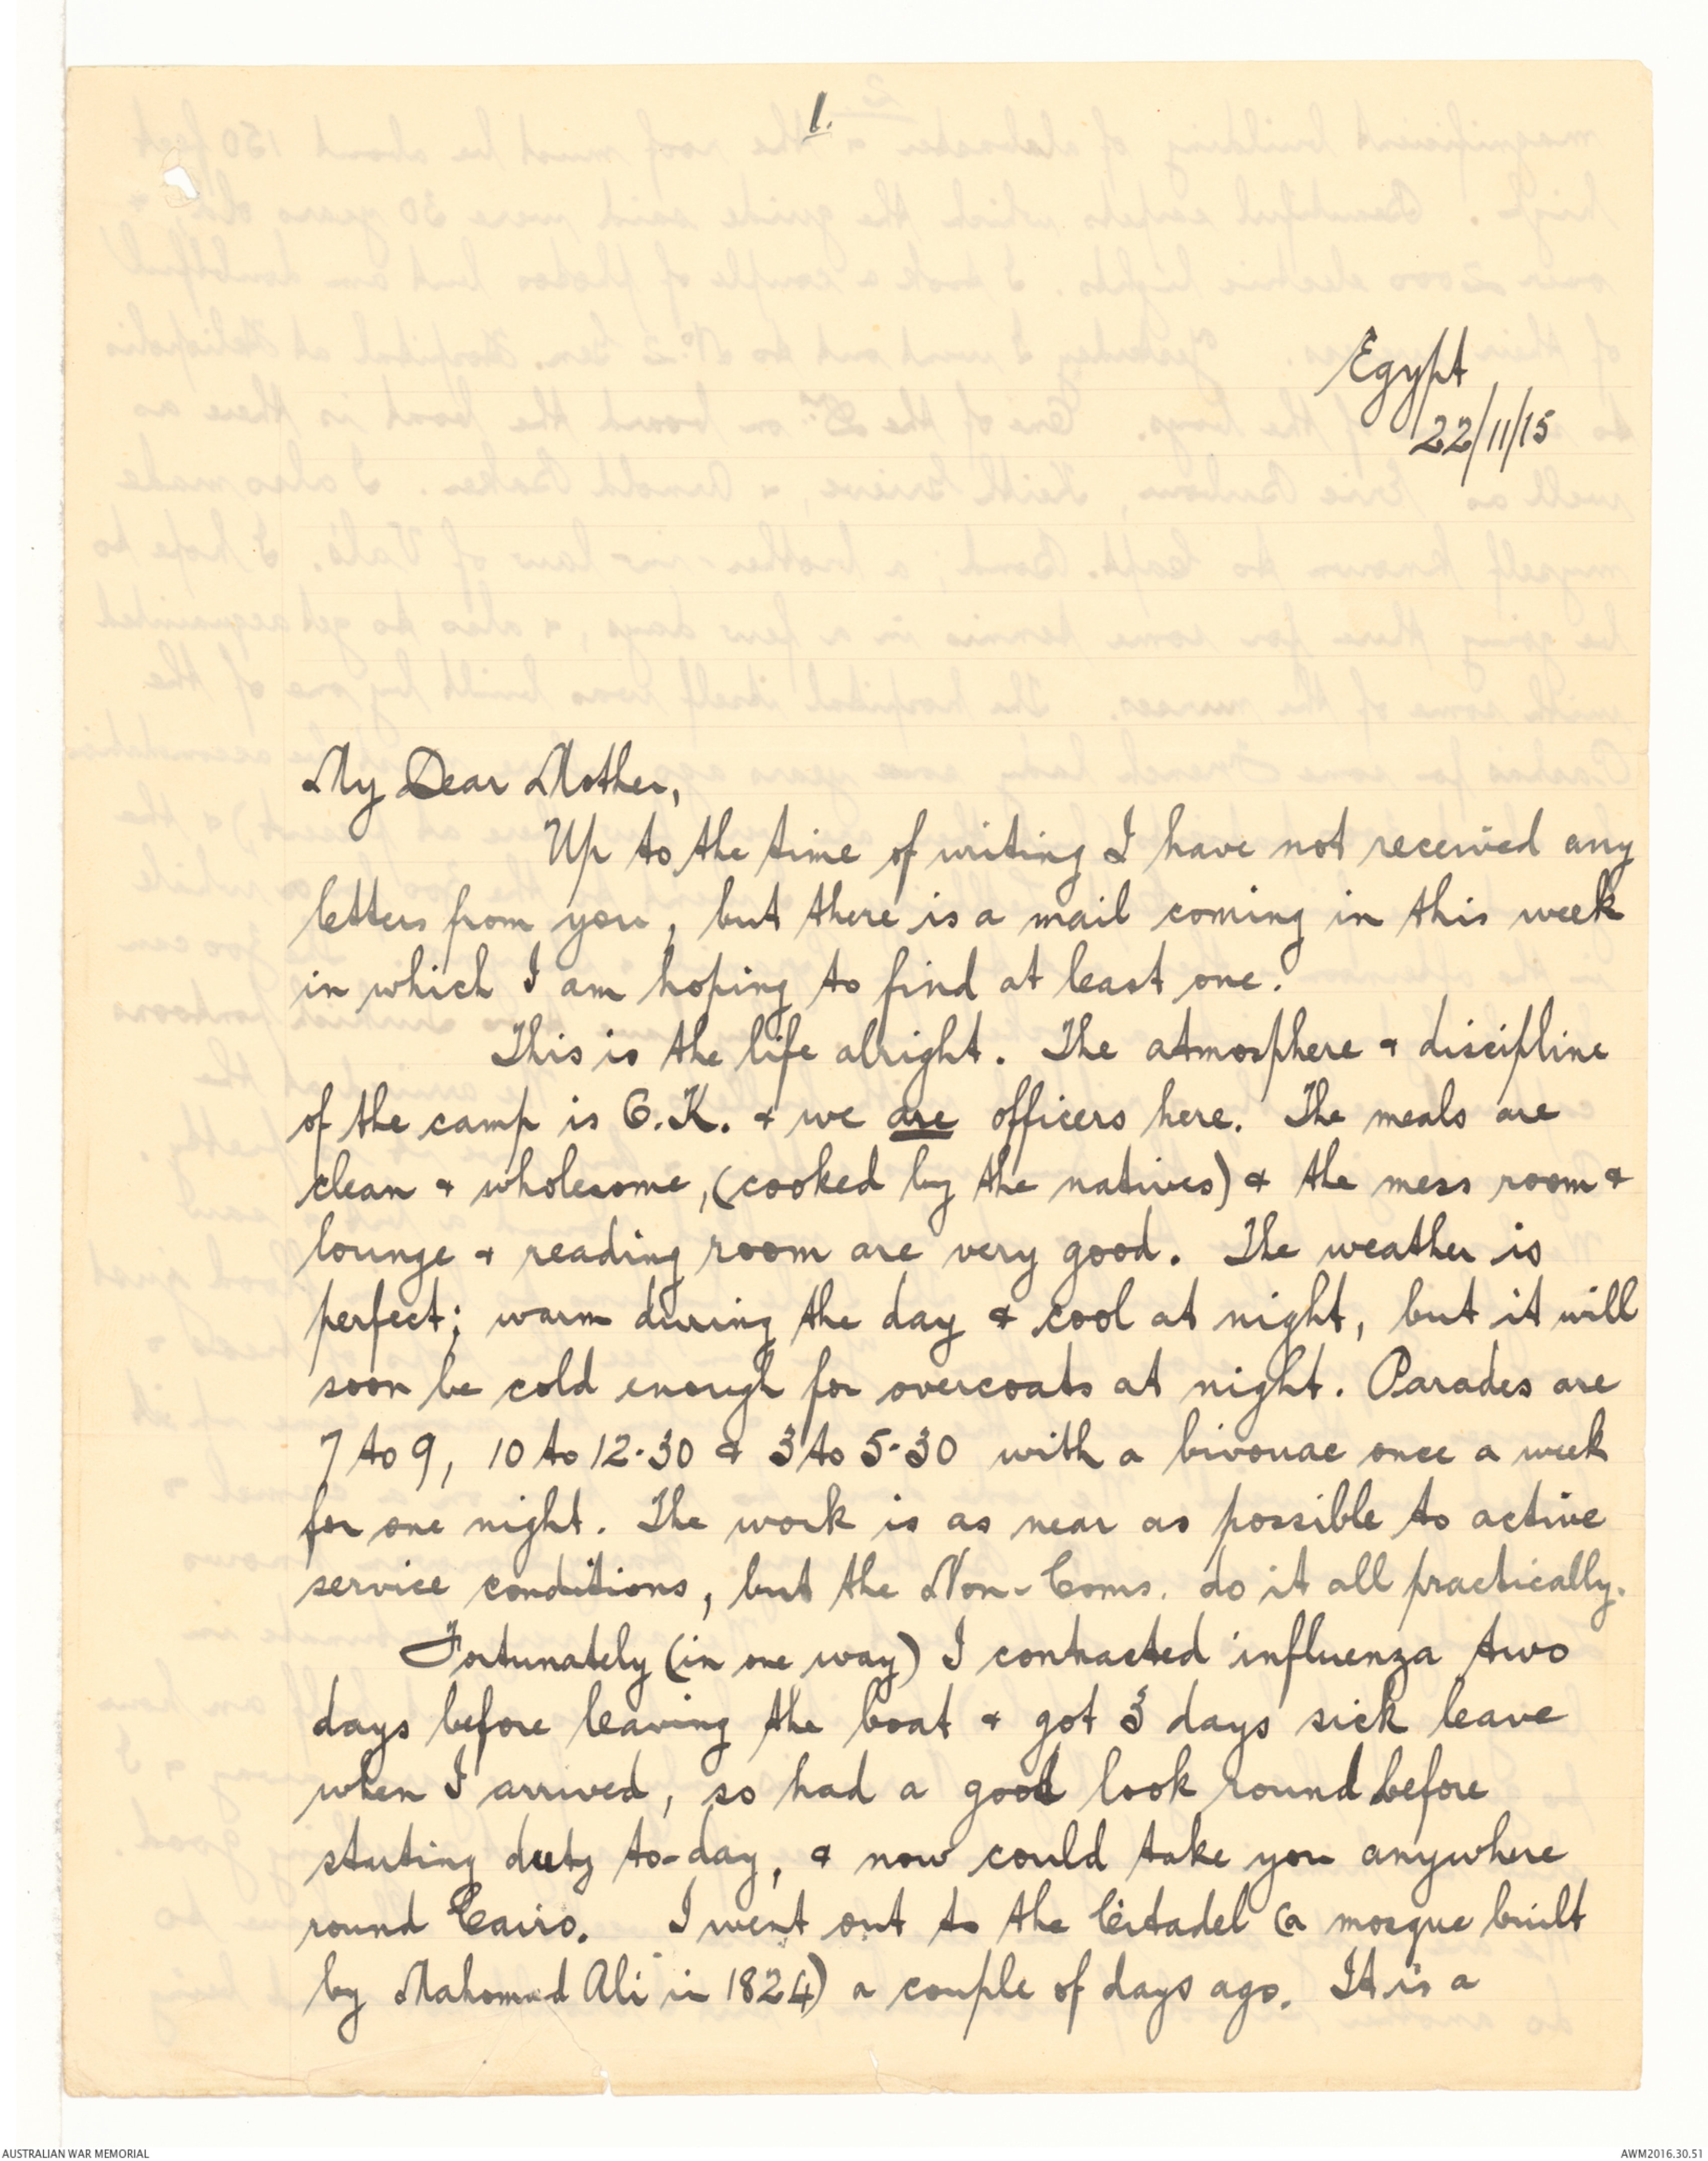 1.
Egypt
22/11/15
My Dear Mother,
Up to the time of writing I have not received any
letters from you, but there is a mail coming in this week
in which I am hoping to find at least one.
This is the life alright. The atmosphere & discipline
of the camp is O.K. & we are officers here. The meals are
clean & wholesome, (cooked by the natives) & the mess room &
lounge & reading room are very good. The weather is
perfect; warm during the day & cool at night, but it will
soon be cold enough for overcoats at night. Parades are
7 to 9, 10 to 12·30 & 3 to 5·30 with a bivouac once a week
for one night. The work is as near as possible to active
service conditions, but the Non-Coms. do it all practically.
Fortunately (in one way) I contracted influenza two
days before leaving the boat & got 3 days sick leave
when I arrived, so had a good look round before
starting duty to-day, & now could take you anywhere
round Cairo. I went out to the Citadel (a mosque built
by Mahomed Ali in 1824) a couple of days ago. It is a
AUSTRALIAN WAR MEMORIAL
AWM2016.30.51